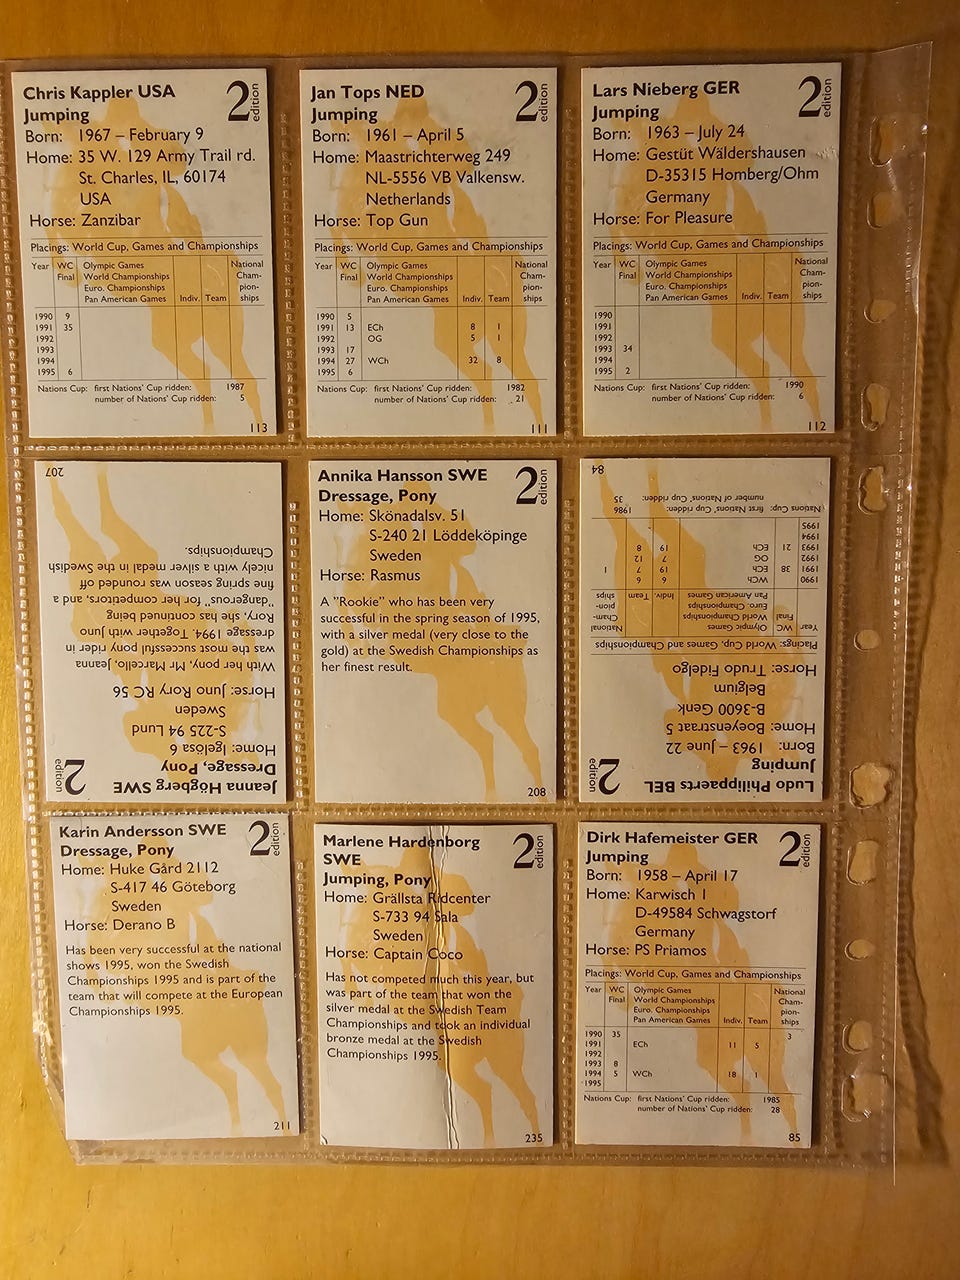 Chris Kappler USA
2 edition
Jumping
Born: 1967 – February 9
Home: 35 W. 129 Army Trail rd.
St. Charles, IL, 60174
USA
Horse: Zanzibar
Placings: World Cup, Games and Championships
Year WC Final Olympic Games World Championships Euro. Championships Pan American Games Indiv. Team National Cham-pion-ships
1990 9
1991 35
1992
1993
1994
1995 6
Nations Cup: first Nations' Cup ridden: 1987
number of Nations' Cup ridden: 5
113
Jan Tops NED
2 edition
Jumping
Born: 1961 – April 5
Home: Maastrichterweg 249
NL-5556 VB Valkensw.
Netherlands
Horse: Top Gun
Placings: World Cup, Games and Championships
Year WC Final Olympic Games World Championships Euro. Championships Pan American Games Indiv. Team National Cham-pion-ships
1990 5
1991 13 ECh 8 1
1992 OG 5 1
1993 17
1994 27 WCh 32 8
1995 6
Nations Cup: first Nations' Cup ridden: 1982
number of Nations' Cup ridden: 21
111
Lars Nieberg GER
2 edition
Jumping
Born: 1963 – July 24
Home: Gestüt Wäldershausen
D-35315 Homberg/Ohm
Germany
Horse: For Pleasure
Placings: World Cup, Games and Championships
Year WC Final Olympic Games World Championships Euro. Championships Pan American Games Indiv. Team National Cham-pion-ships
1990
1991
1992
1993 34
1994
1995 2
Nations Cup: first Nations' Cup ridden: 1990
number of Nations' Cup ridden: 6
112
Jeanna Högberg SWE
2 edition
Dressage, Pony
Home: Igelösa 6
S-225 94 Lund
Sweden
Horse: Juno Rory RC 56
With her pony, Mr Marcello, Jeanna
was the most successful pony rider in
dressage 1994. Together with Juno
Rory, she has continued being
"dangerous" for her competitors, and a
fine spring season was rounded off
nicely with a silver medal in the Swedish
Championships.
207
Annika Hansson SWE
2 edition
Dressage, Pony
Home: Skönadalsv. 51
S-240 21 Löddeköpinge
Sweden
Horse: Rasmus
A "Rookie" who has been very
successful in the spring season of 1995,
with a silver medal (very close to the
gold) at the Swedish Championships as
her finest result.
208
Ludo Philippaerts BEL
2 edition
Jumping
Born: 1963 – June 22
Home: Boeyenstraat 5
B-3600 Genk
Belgium
Horse: Trudo Fidelgo
Placings: World Cup, Games and Championships
Year WC Final Olympic Games World Championships Euro. Championships Pan American Games Indiv. Team National Cham-pion-ships
1990 WCh 6 6
1991 38 ECh 19 7 1
1992 OG 7 12
1993 21 ECh 19 8
1994
1995
Nations Cup: first Nations' Cup ridden: 1986
number of Nations' Cup ridden: 35
84
Karin Andersson SWE
2 edition
Dressage, Pony
Home: Huke Gård 2112
S-417 46 Göteborg
Sweden
Horse: Derano B
Has been very successful at the national
shows 1995, won the Swedish
Championships 1995 and is part of the
team that will compete at the European
Championships 1995.
211
Marlene Hardenborg
2 edition
SWE
Jumping, Pony
Home: Grällsta Ridcenter
S-733 94 Sala
Sweden
Horse: Captain Coco
Has not competed much this year, but
was part of the team that won the
silver medal at the Swedish Team
Championships and took an individual
bronze medal at the Swedish
Championships 1995.
235
Dirk Hafemeister GER
2 edition
Jumping
Born: 1958 – April 17
Home: Karwisch 1
D-49584 Schwagstorf
Germany
Horse: PS Priamos
Placings: World Cup, Games and Championships
Year WC Final Olympic Games World Championships Euro. Championships Pan American Games Indiv. Team National Cham-pion-ships
1990 35 3
1991 ECh 11 5
1992
1993 8
1994 5 WCh 18 1
1995
Nations Cup: first Nations' Cup ridden: 1985
number of Nations' Cup ridden: 28
85